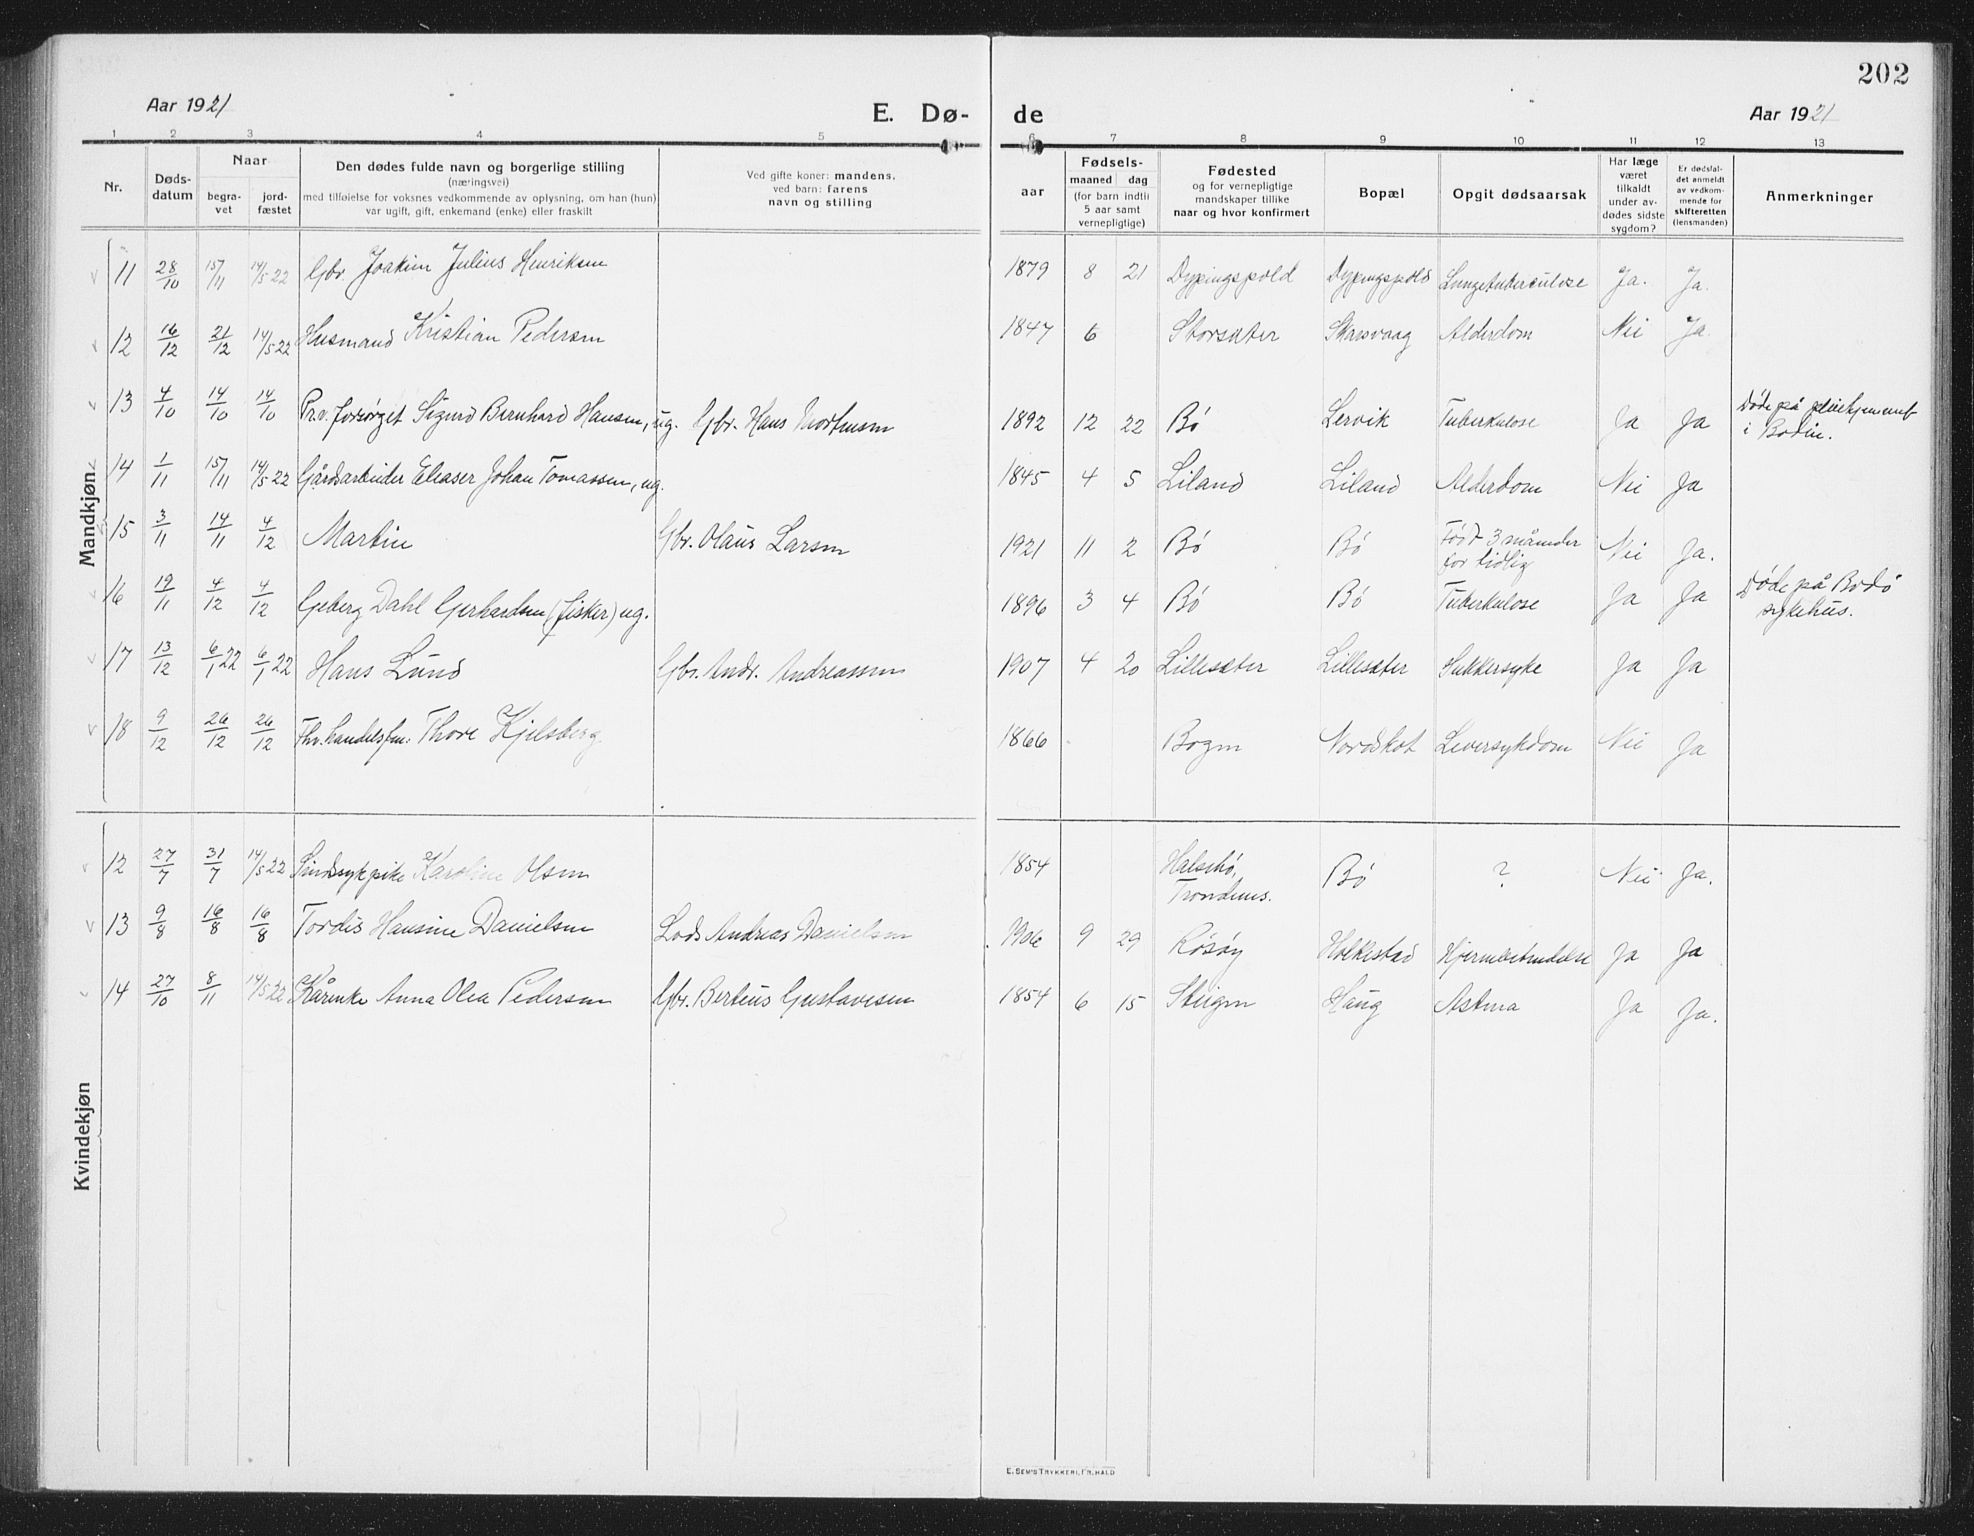 202
Aar 1921
E. Dø-
de
Aar 1921
1 2 3 4 5 6 7 8 9 10 11 12 13
Nr.
Døds-
datum
Naar
begra-
vet
jord-
fæstet
Den dødes fulde navn og borgerlige stilling
(næringsvei)
med tilføielse for voksnes vedkommende av oplysning, om han (hun)
var ugift, gift, enkemand (enke) eller fraskilt
Ved gifte koner: mandens,
ved barn: farens
navn og stilling
Fødsels-
aar
maaned dag
(for barn indtil
5 aar samt
vernepligtige)
Fødested
og for vernepligtige
mandskaper tillike
naar og hvor konfirmert
Bopæl
Opgit dødsaarsak
Har læge
været
tilkaldt
under av-
dødes sidste
sygdom?
Er dødsfal-
det anmeldt
av vedkom-
mende for
skifteretten
(lensmanden)
Anmerkninger
Mandkjøn.
11 28/10 15/11 14/5 22 Gbr. Joakim Julius Henriksen 1879 8 21 Dypingspold Dypingspold Lungetuberculose Ja. Ja.
12 16/12 21/12 14/5 22 Husmand Kristian Pedersen 1847 6 Storsæter Skarsvaag Alderdom Nei Ja.
13 4/10 14/10 14/10 Pr.v. forsørget Sigurd Bernhard Hansen, ug. Gbr. Hans Mortensen 1892 12 22 Bø Lervik Tuberkulose Ja Ja Døde på pleiehjemmet
i Bodin.
14 1/11 15/11 14/5 22 Gårdsarbeider Eleaser Johan Tomassen, ug. 1845 4 5 Liland Liland Alderdom Nei Ja
15 3/11 14/11 4/12 Martin Gbr. Olaus Larsen 1921 11 2 Bø Bø Født 3 måneder
for tidlig Nei Ja.
16 19/11 4/12 4/12 Geberg Dahl Gerhardsen (fisker) ug. 1896 3 4 Bø Bø Tuberkulose Ja Ja Døde på Bodø
sykehus.
17 13/12 6/1 22 6/1 22 Hans Lund Gbr. Andr. Andreassen 1907 4 20 Lillesæter Lillesæter Sukkersyke Ja Ja
18 9/12 26/12 26/12 Fhv. handelsfm. Thore Kjelsberg 1866 Bogen Nordskot Leversykdom Nei Ja
Kvindekjøn
12 27/7 31/7 14/5 22 Sindssykpike Karoline Olsen 1854 Halsebø,
Trondenes. Bø ? Nei Ja.
13 9/8 16/8 16/8 Tordis Hansine Danielsen Lods Andreas Danielsen 1906 9 29 Røsøy Holkestad Hjernebetændelse Ja Ja
14 27/10 8/11 14/5 22 Kårenke Anna Olea Pedersen Gbr. Berteus Gustavesen 1854 6 15 Steigen Haug Astma Ja Ja.
E. SEM'S TRYKKERI, FR.HALD